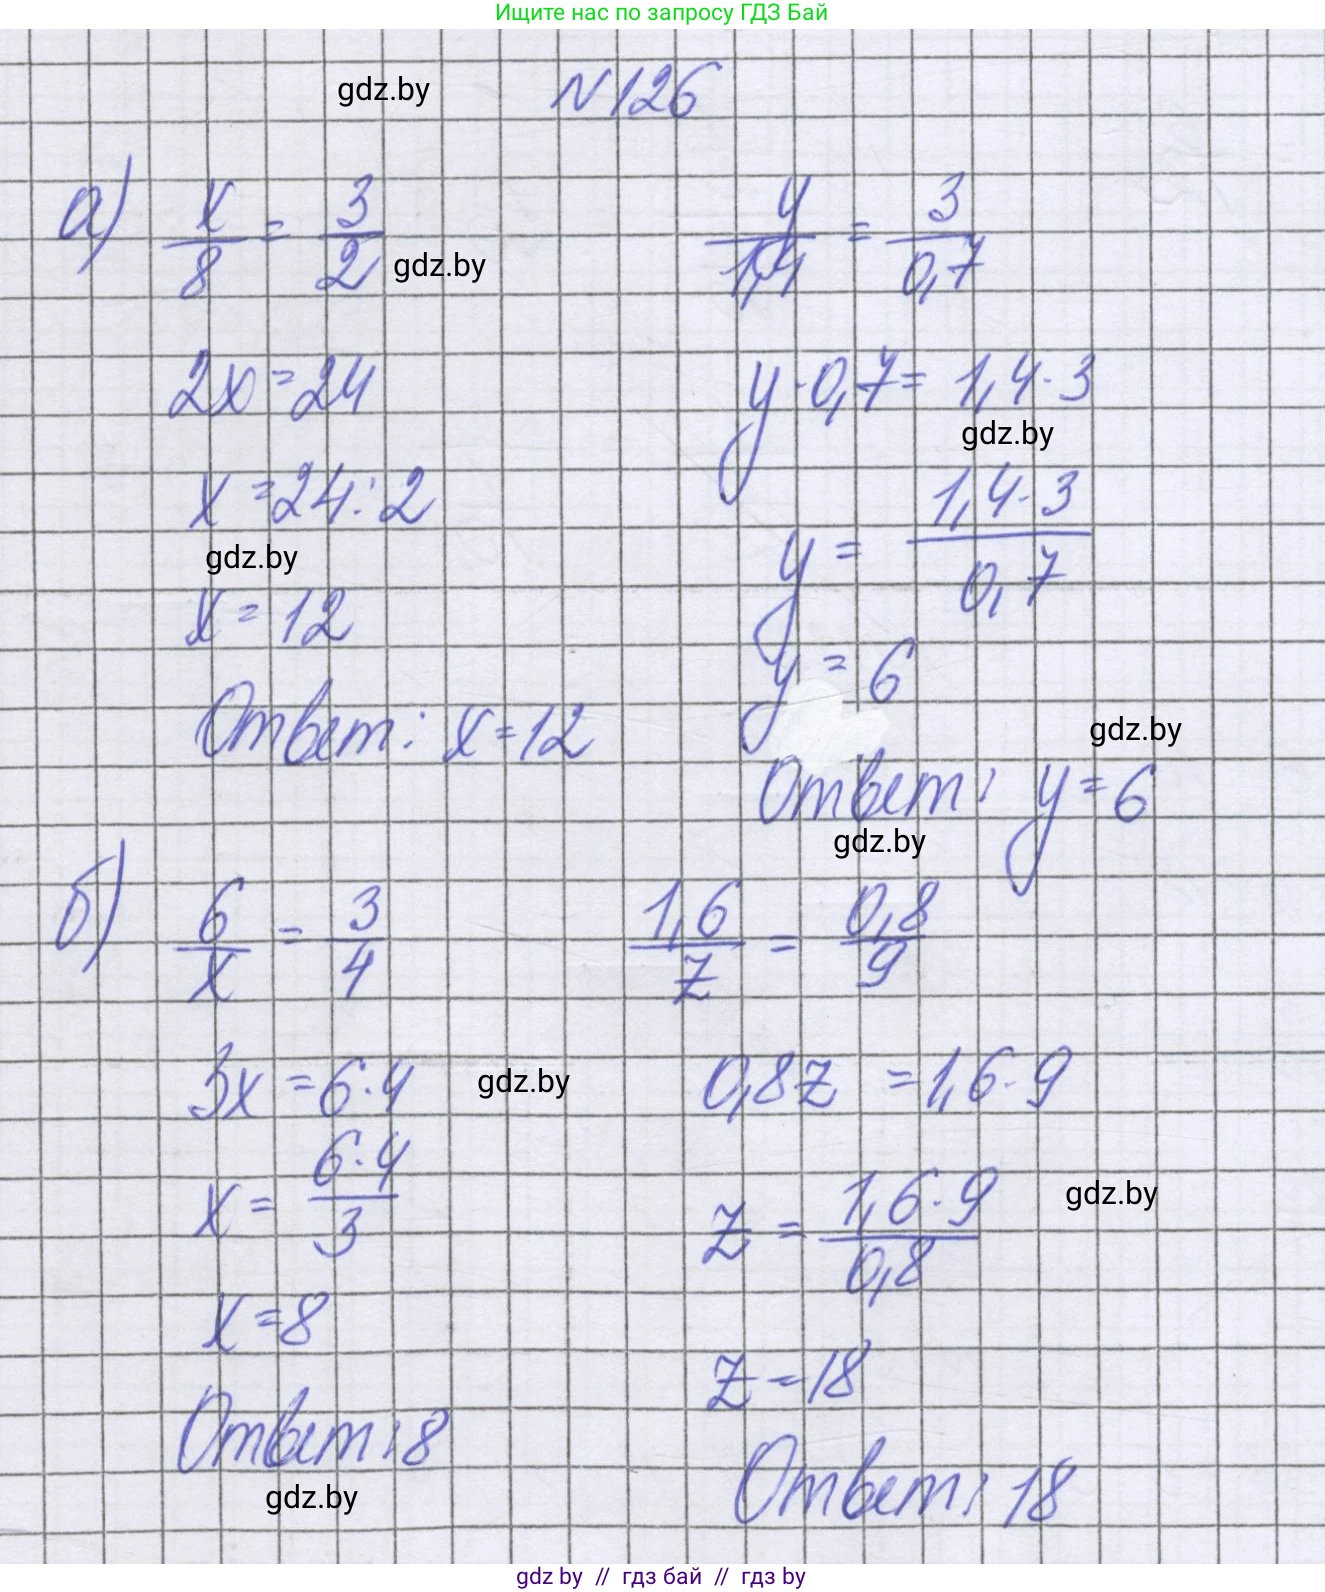 Ищите нас по запросу ГДЗ Бай
gdz.by
N126
а) x/8 = 3/2
gdz.by
2x = 24
x = 24 : 2
gdz.by
x = 12
Ответ: x = 12
y/1,4 = 3/0,7
y · 0,7 = 1,4 · 3
gdz.by
y = 1,4 · 3/0,7
y = 6
gdz.by
Ответ: y = 6
gdz.by
б) 6/x = 3/4
3x = 6 · 4
gdz.by
x = 6 · 4/3
x = 8
Ответ: 8
gdz.by
1,6/z = 0,8/9
0,8z = 1,6 · 9
z = 1,6 · 9/0,8
gdz.by
z = 18
Ответ: 18
gdz by // гдз бай // гдз by